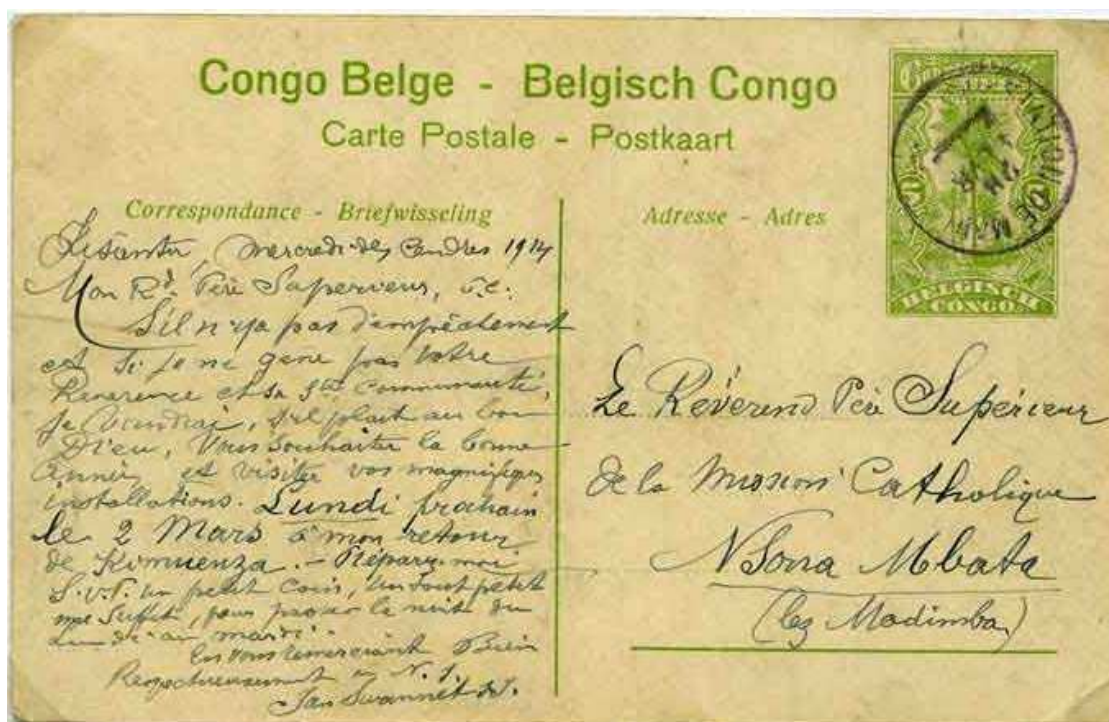 Congo Belge - Belgisch Congo
Carte Postale - Postkaart
Correspondance - Briefwisseling
Kisantu, mercredi des Cendres 1914
Mon Rd. Père Superieur,
S'il n'y a pas d'empêchement
et si je ne gene pas Votre
Reverence et sa Ste Communauté,
je viendrai, s'il plait au bon
Dieu, Vous souhaiter la bonne
année, et visiter vos magnifiques
installations. Lundi prochain
le 2 Mars à mon retour
de Kimuenza. - Préparez-moi
S.v.P. un petit coin, un tout petit
me suffit, pour passer la nuit du
Lundi au mardi.
En vous remerciant Bien
Respectueusement in N. S.
Jan Swannet
Adresse - Adres
BELGISCH
CONGO
Le Révérend Père Supérieur
de la Mission Catholique
NSona Mbata
(lez Madimba)